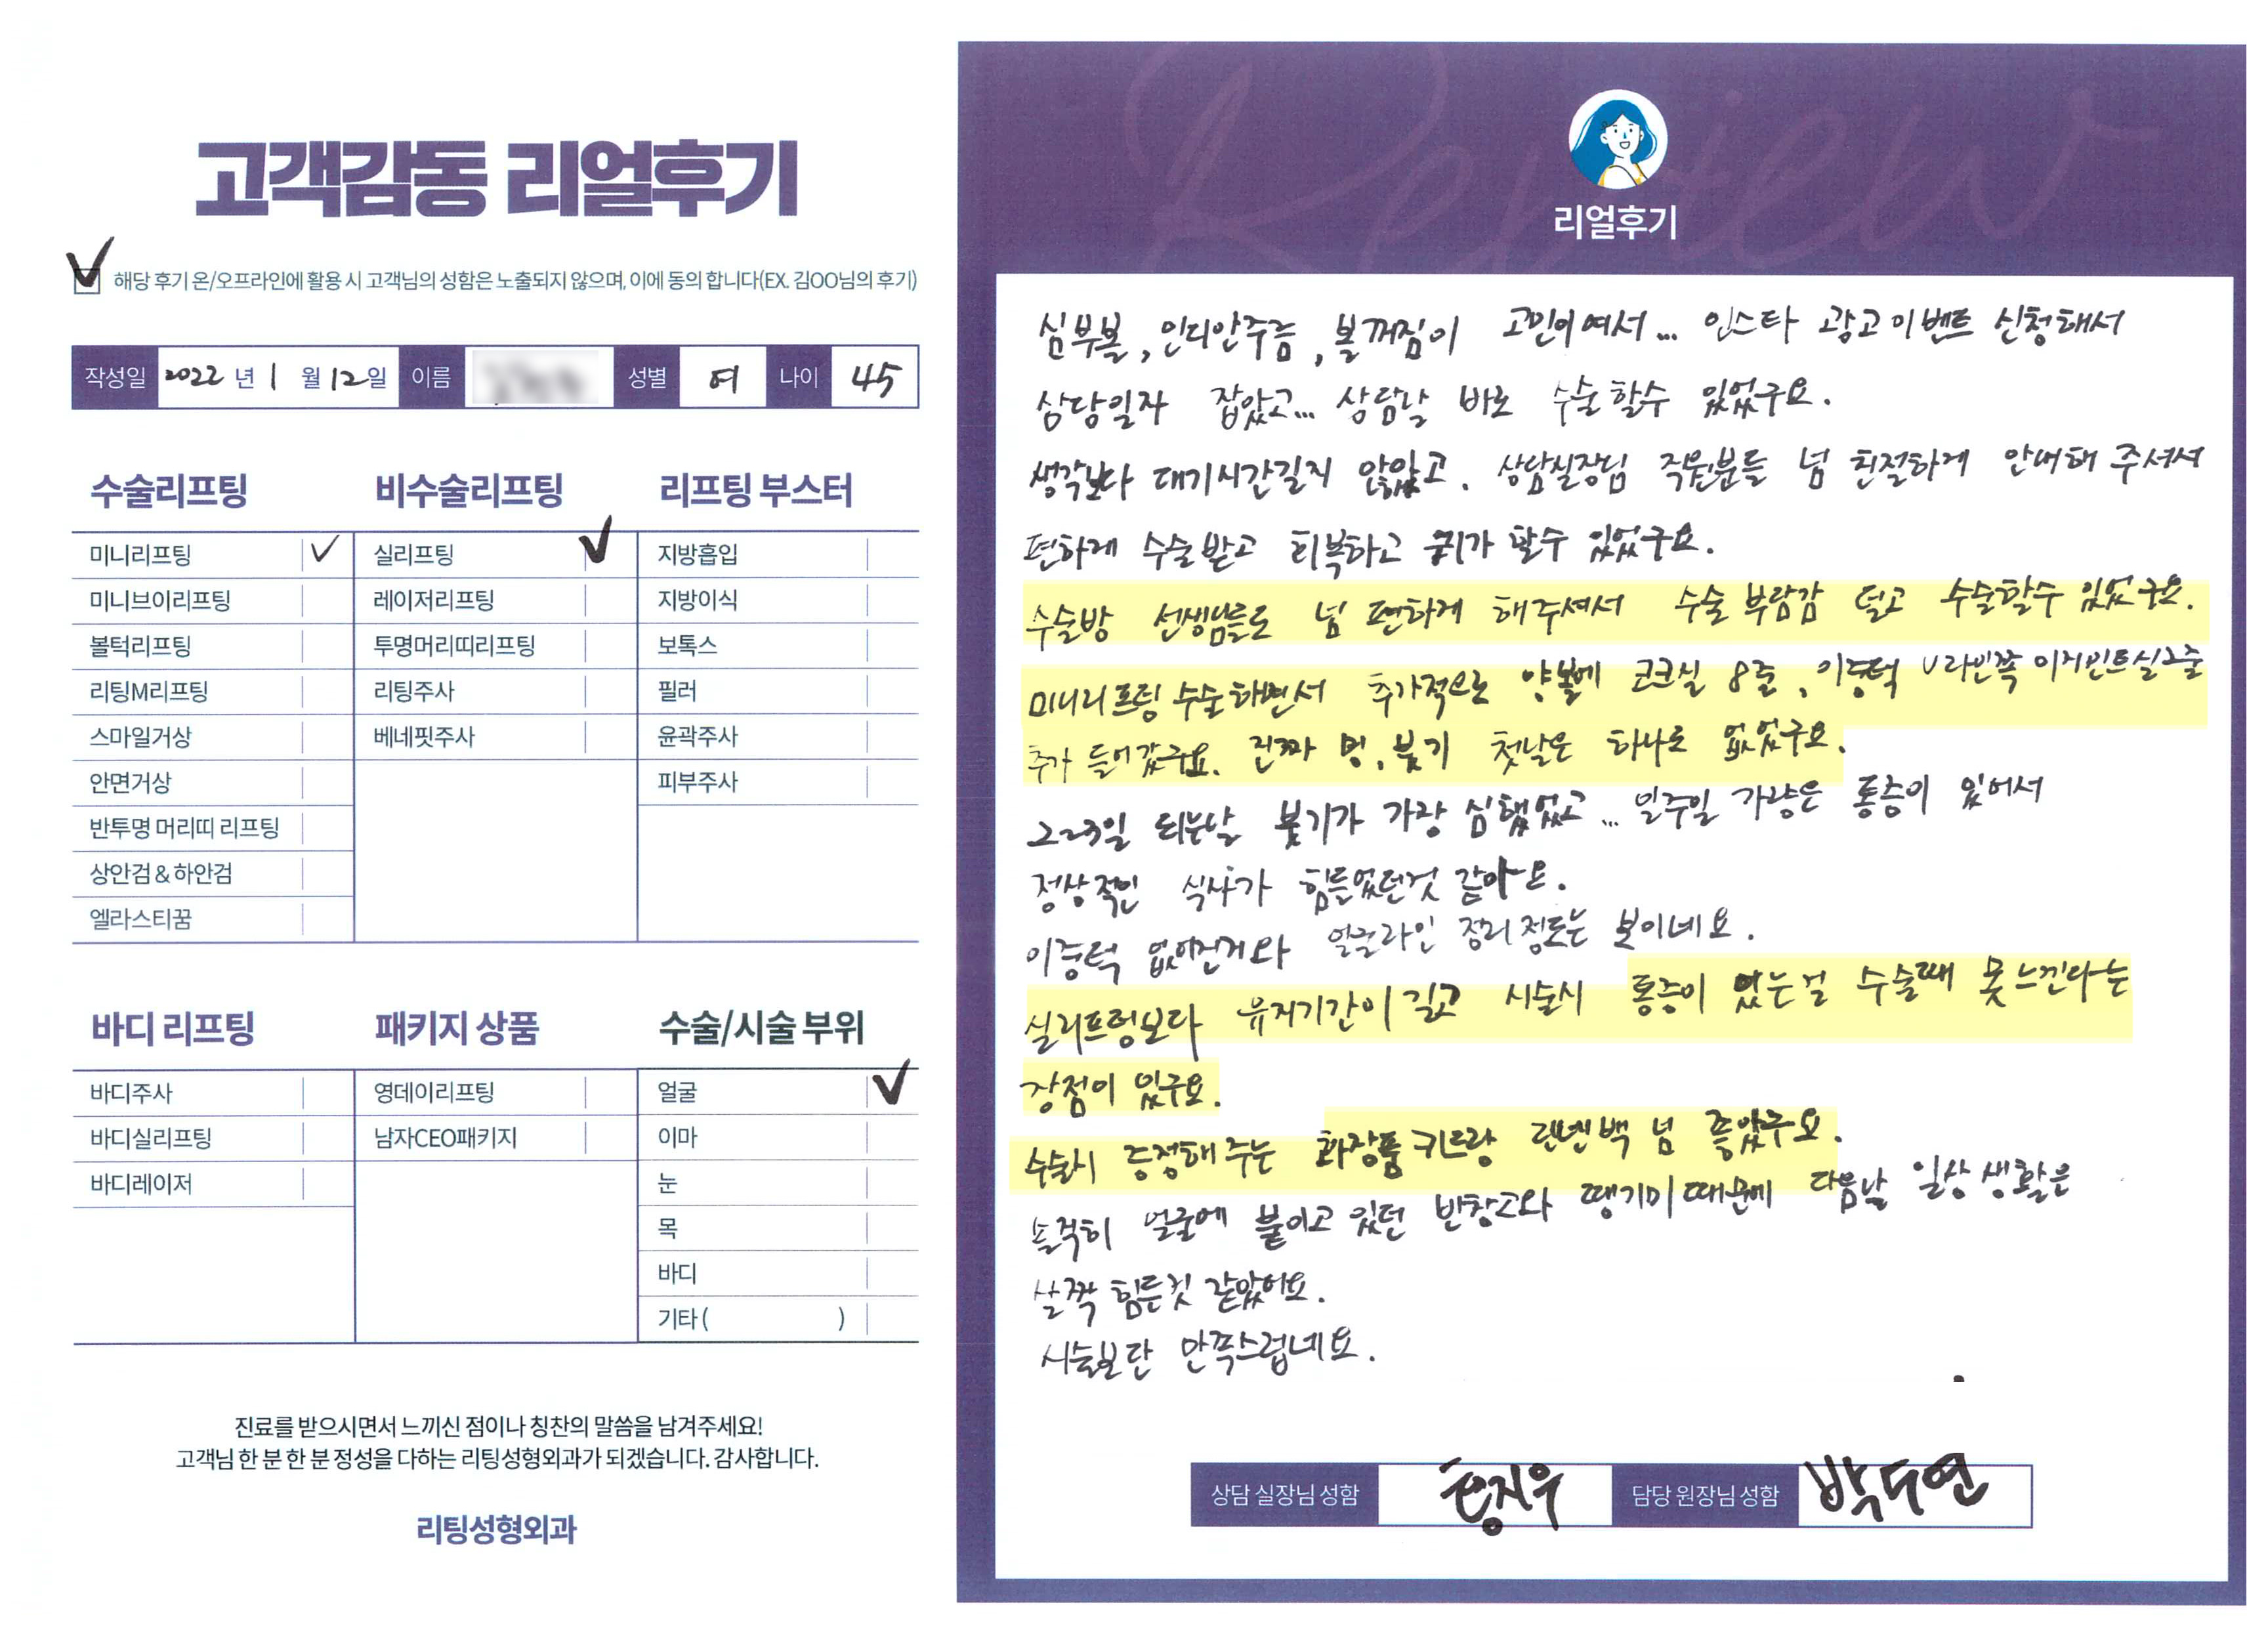 고객감동 리얼후기
해당 후기 온/오프라인에 활용 시 고객님의 성함은 노출되지 않으며, 이에 동의 합니다(EX. 김OO님의 후기)
작성일 2022 년 1 월 12 일 이름 성별 여 나이 45
수술리프팅 비수술리프팅 리프팅 부스터
미니리프팅 실리프팅 지방흡입
미니브이리프팅 레이저리프팅 지방이식
볼턱리프팅 투명머리띠리프팅 보톡스
리팅M리프팅 리팅주사 필러
스마일거상 베네핏주사 윤곽주사
안면거상 피부주사
반투명 머리띠 리프팅
상안검 & 하안검
엘라스티꿈
바디 리프팅 패키지 상품 수술/시술 부위
바디주사 영데이리프팅 얼굴
바디실리프팅 남자CEO패키지 이마
바디레이저 눈
목
바디
기타 ( )
진료를 받으시면서 느끼신 점이나 칭찬의 말씀을 남겨주세요!
고객님 한 분 한 분 정성을 다하는 리팅성형외과가 되겠습니다. 감사합니다.
리팅성형외과
Review
리얼후기
심부볼, 인디안주름, 볼꺼짐이 고민이여서... 인스타 광고이벤트 신청해서
상담일자 잡았고... 상담날 바로 수술할수 있었구요.
생각보다 대기시간길지 않았고. 상담실장님 직원분들 넘 친절하게 안내해 주셔서
편하게 수술받고 회복하고 귀가 할수 있었구요.
수술방 선생님들도 넘 편하게 해주셔서 수술 부담감 덜고 수술할수 있었구요.
미니리프팅 수술하면서 추가적으로 양볼에 코크실 8줄, 이중턱 V라인쪽 이지민트실2줄
추가 들어갔구요. 진짜 멍, 붓기 첫날은 하나도 없었구요.
2~3일 되는날 붓기가 가장 심했었고... 일주일 가량은 통증이 있어서
정상적인 식사가 힘들었던것 같아요.
이중턱 없어진거와 얼굴라인 정리정도는 보이네요.
실리프팅보다 유지기간이 길고 시술시 통증이 있는걸 수술때 못느낀다는
장점이 있구요.
수술시 증정해주는 화장품키트랑 린넨백 넘 좋았구요.
솔직히 얼굴에 붙이고 있던 반창고와 땡기미때문에 다음날 일상생활은
살짝 힘든것 같았어요.
시술보단 만족스럽네요.
상담 실장님 성함 담당 원장님 성함 박두연